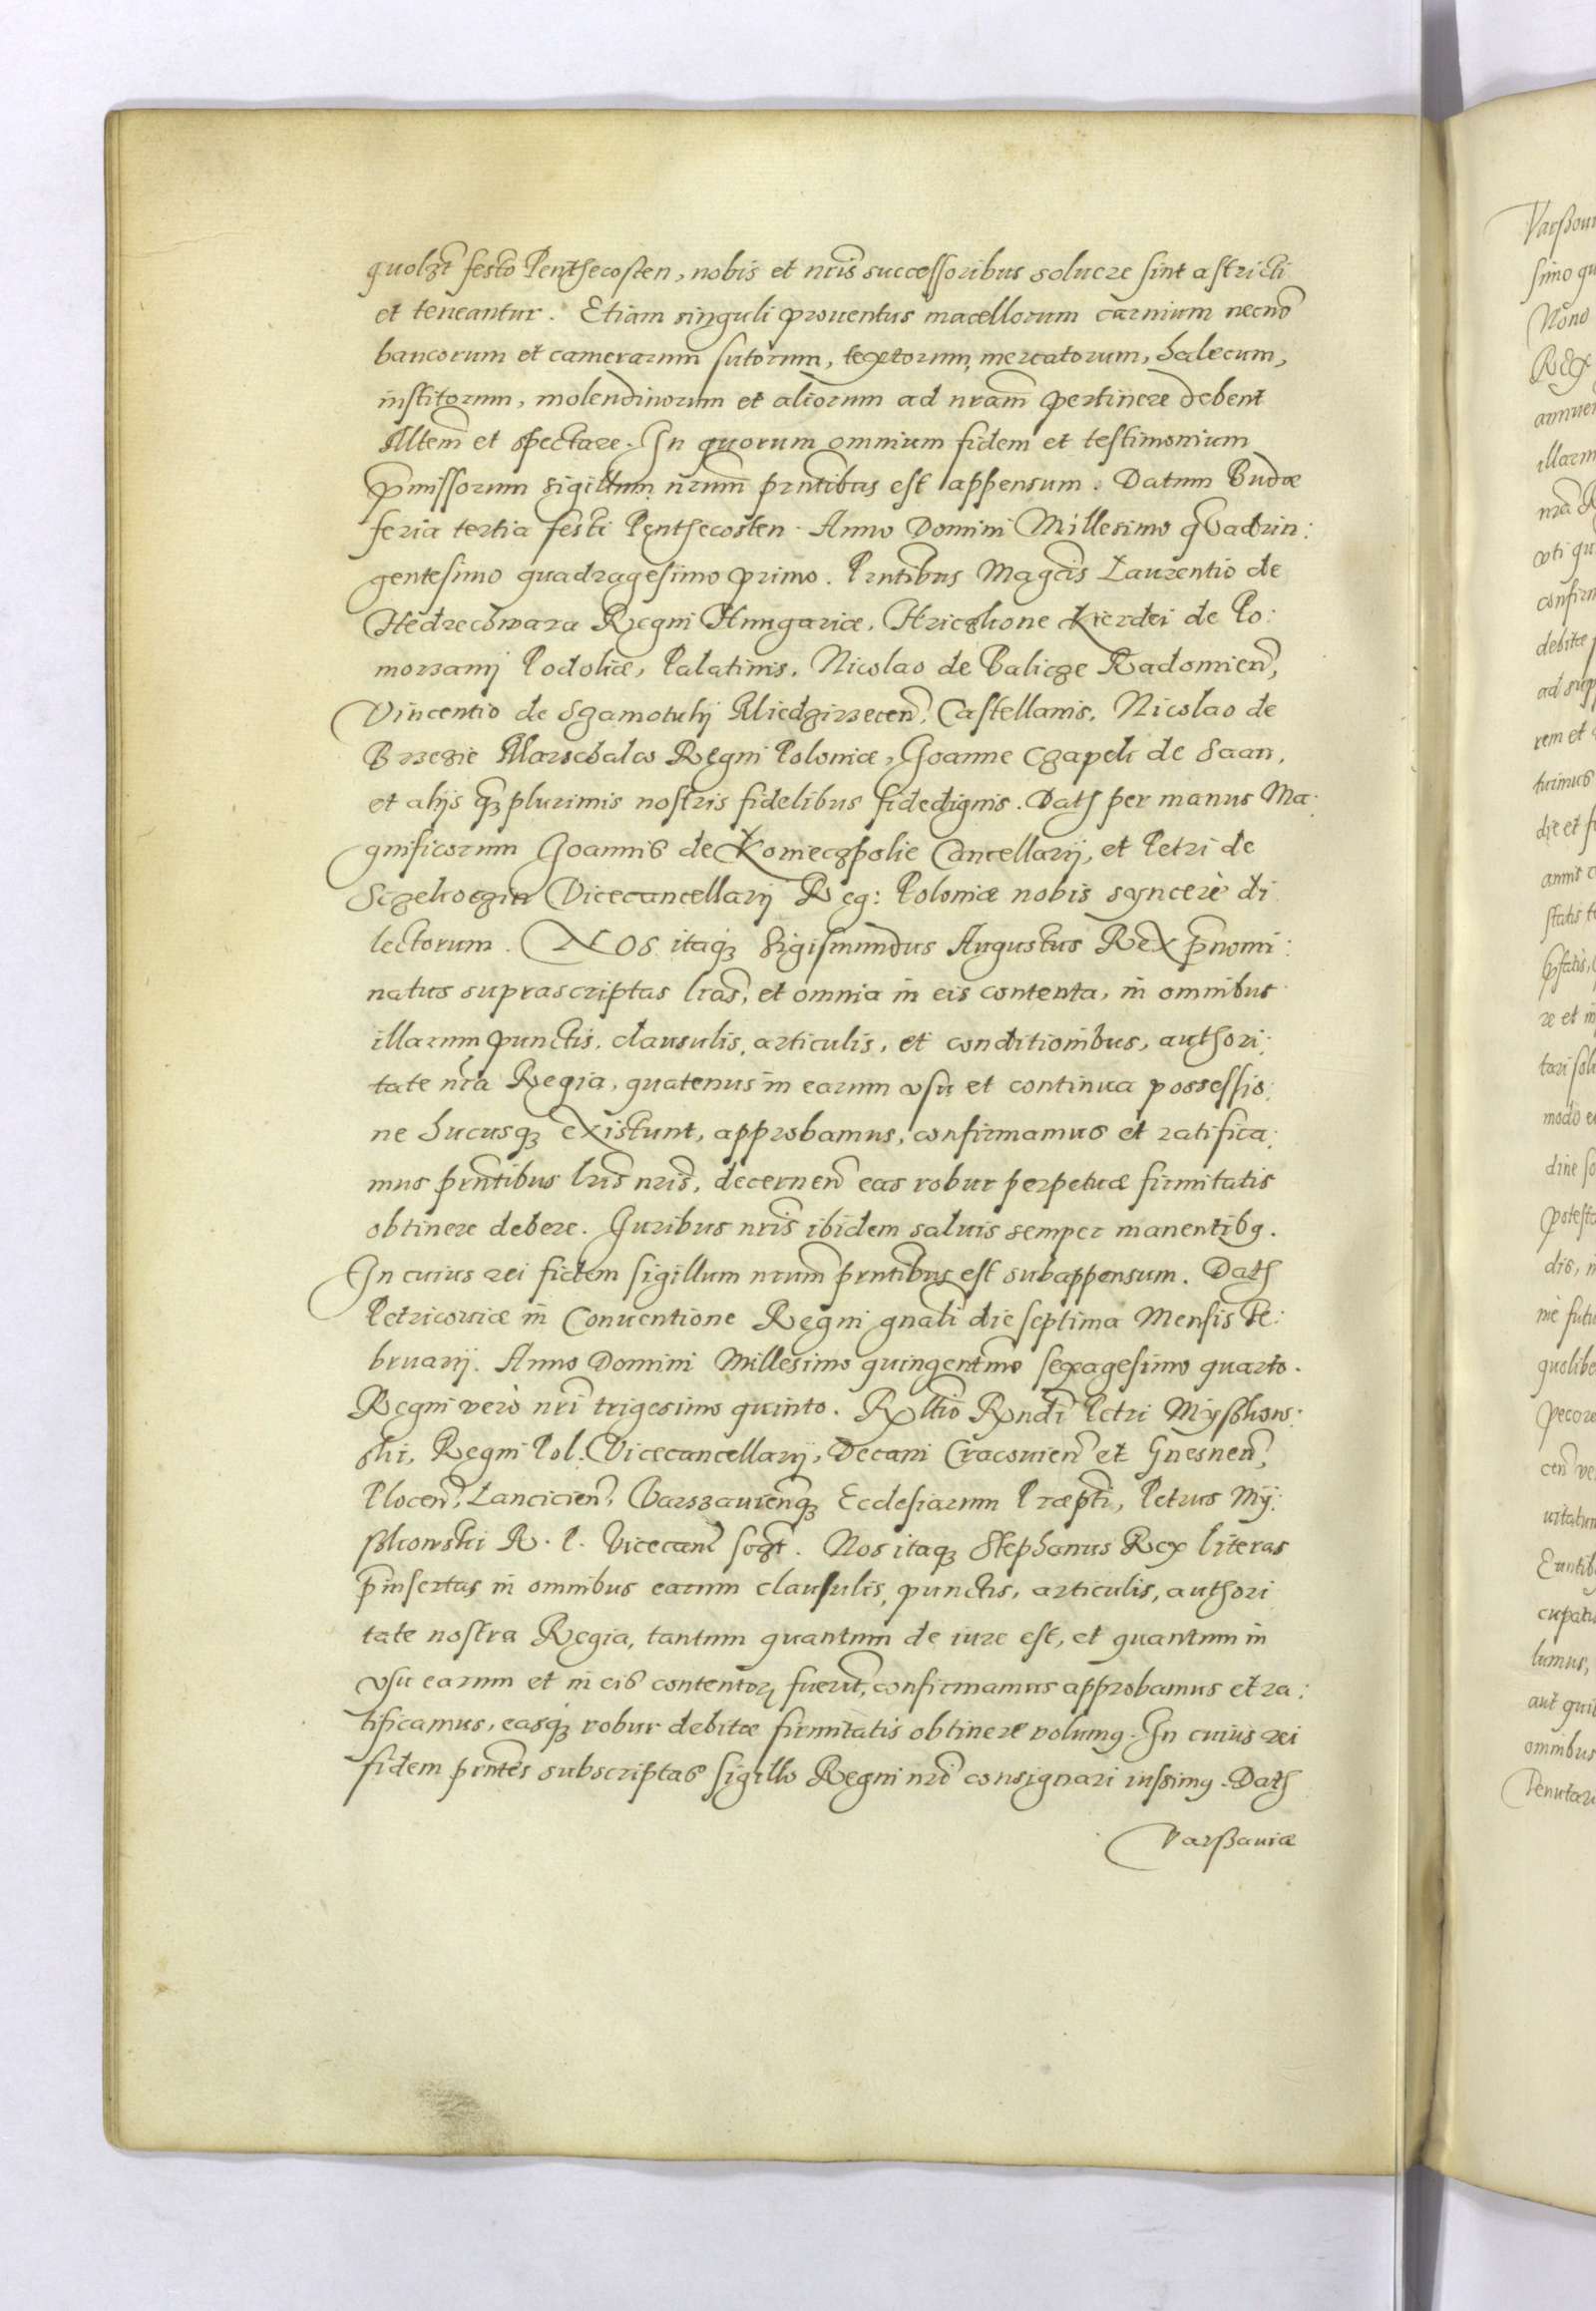 quolzt festo Penthecosten, nobis et nris successoribus soluere sint astricti
et teneantur. Etiam singuli prouentus macellorum carnium necno
bancorum et camerarum sutorum, textorum, mercatorum, halecum,
institorum, molendinorum et aliorum ad nram pertinere debent
Mtem et spectare. In quorum omnium fidem et testimonium
pmissorum sigillum nrum prntibus est appensum. Datum Budæ
feria tertia festi Penthecosten. Anno Domini Millesimo quadrin:
gentesimo quadragesimo primo. Prntibus Magcis Laurentio de
Hedrechwara Regni Hungariæ, Hriczkone Kierdei de Po:
morzanij Podoliæ, Palatinis, Nicolao de Balicze Radomien,
Vincentio de Szamotulij Miedzirzecen, Castellanis, Nicolao de
Brzezie Marschalco Regni Poloniæ, Joanne Czapek de Saan,
et alijs qzplurimis nostris fidelibus fidedignis. Dath per manus Ma:
gnificorum Joannis de Konieczpolie Cancellarij, et Petri de
Sczekoczin Vicecancellarij Reg: Poloniæ nobis syncerè di
lectorum. NOS itaqz Sigismundus Augustus Rex pnomi:
natus suprascriptas lras, et omnia in eis contenta, in omnibus
illarum punctis, clausulis, articulis, et conditionibus, authori:
tate nra Regia, quatenus in earum vsu et continua possessio:
ne hucusqz existunt, approbamus, confirmamus et ratifica:
mus prntibus lris nris, decernen eas robur perpetuæ firmitatis
obtinere debere. Juribus nris ibidem saluis semper manentib9.
In cuius rei fidem sigillum nrum prntibus est subappensum. Dath
Petricouiæ in Conuentione Regni gnali die septima Mensis Fe:
bruarij. Anno Domini Millesimo quingentmo sexagesimo quarto.
Regni verò nri trigesimo quinto. Rltio Rndi Petri Myßkow:
ski, Regni Pol. Vicecancellarij, Decani Cracouien et Gnesnen,
Plocen, Lancicien, Varszauienqz Ecclesiarum Præpti, Petrus Mÿ:
ßkowski R. P. Vicecanc sszt. Nos itaqz Stephanus Rex literas
pinsertas in omnibus earum clausulis, punctis, articulis, authori
tate nostra Regia, tantum quantum de iure est, et quantum in
vsu earum et in eis contentor fuerit, confirmamus approbamus et ra:
tificamus, easqz robur debitæ firmitatis obtinere volum9. In cuius rei
fidem prntes subscriptas sigillo Regni nro consignari iussim9. Dath
Varßauiæ